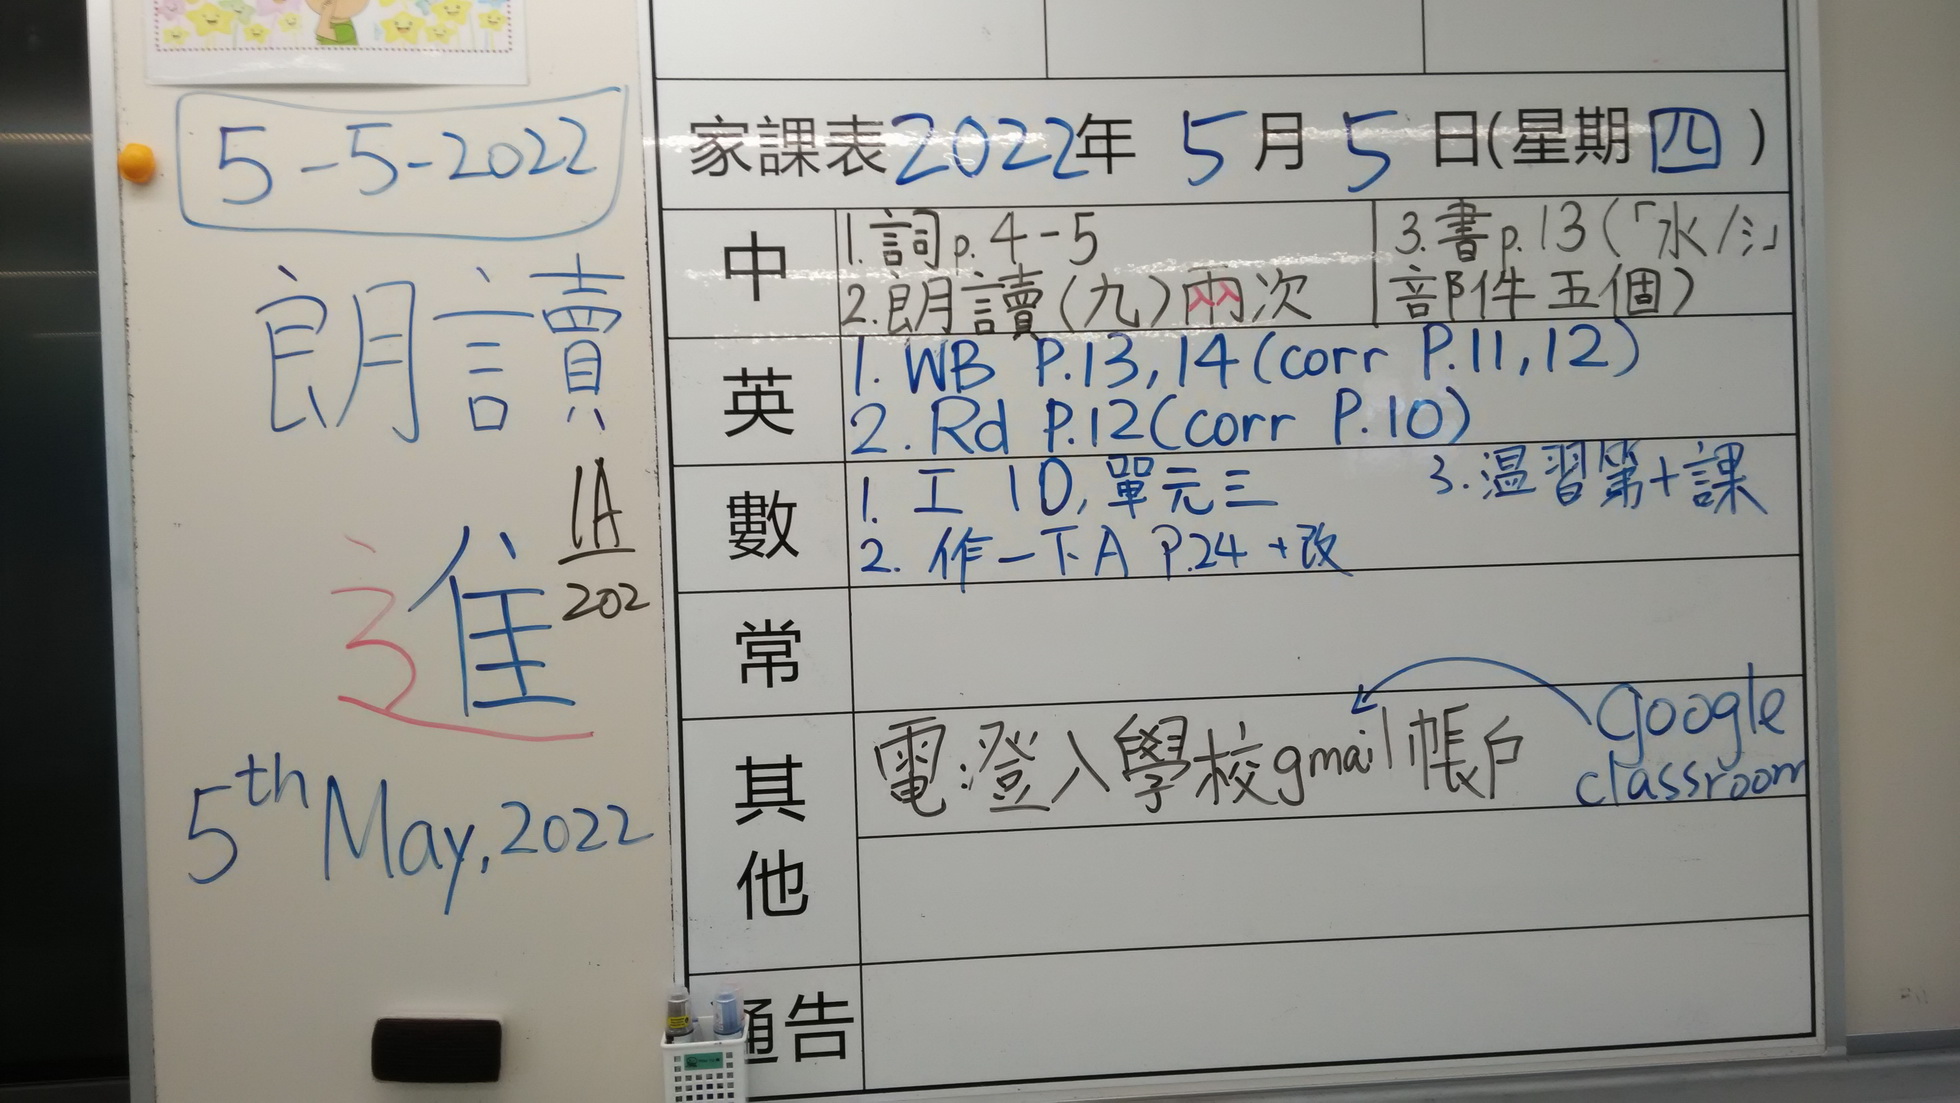 5-5-2022
朗讀
進
1A
202
5th May, 2022
家課表2022年 5月5日(星期四)
中
1.詞p.4-5
2.朗讀(九)兩次
3.書p.13(「水/氵」
部件五個)
英
1. WB P.13,14(corr P.11,12)
2. Rd P.12(corr P.10)
數
1. 工 10, 單元三
2. 作一下A P.24 +改
3. 温習第十課
常
其他
電:登入學校gmail帳戶
Google
classroom
通告